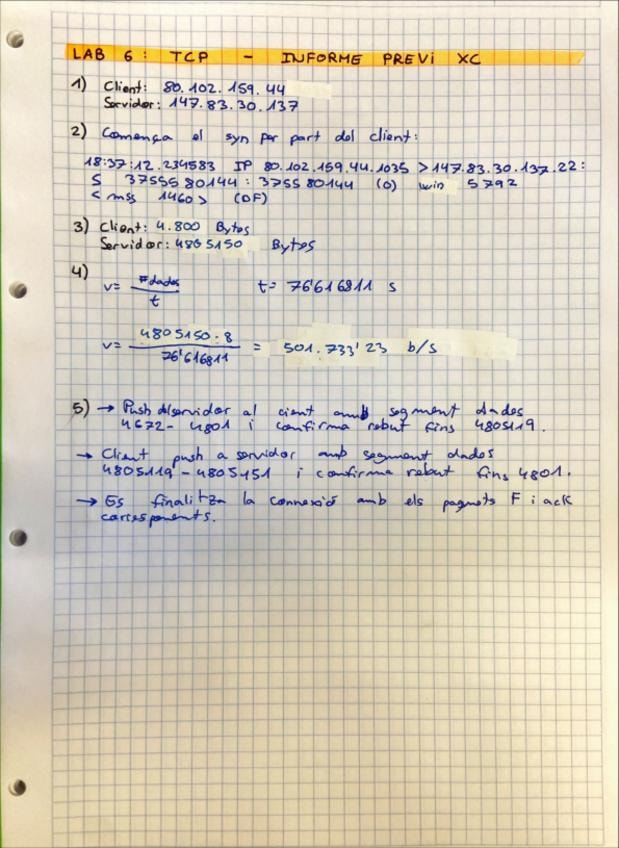 LAB 6: TCP - INFORME PREVI XC
1) Client: 80.102.159.44
Servidor: 147.83.30.137
2) Comença el syn per part del client:
18:37:12.234583 IP 80.102.159.44.1035 > 147.83.30.137.22:
S 3755580144:3755580144 (0) win 5792
<mss 1460> (DF)
3) Client: 4.800 Bytes
Servidor: 4805150 Bytes
4)
v= #dades / t t= 76'616811 s
v= 4805150·8 / 76'616811 = 501.733'23 b/s
5) → Push del servidor al cient amb segment dades
4672-4801 i confirma rebut fins 4805119.
→ Client push a servidor amb segment dades
4805119-4805151 i confirma rebut fins 4801.
→ Es finalitza la connexió amb els paquets F i ack
corresponents.